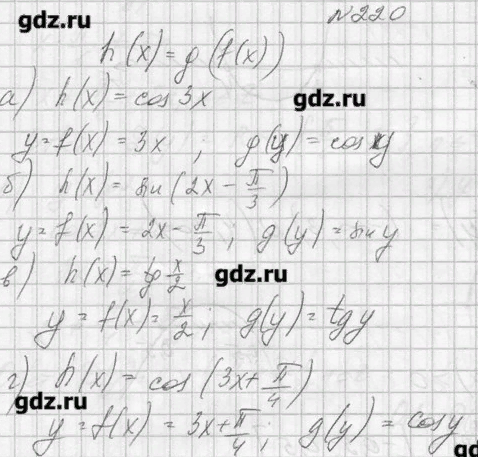 gdz.ru
№220
h(x) = g(f(x))
а) h(x) = cos 3x
gdz.ru
y = f(x) = 3x ; g(y) = cos y
б) h(x) = sin(2x - π/3)
y = f(x) = 2x - π/3 ; g(y) = sin y
в) h(x) = tg x/2
gdz.ru
y = f(x) = x/2 ; g(y) = tg y
г) h(x) = cos(3x + π/4)
gdz.ru
y = f(x) = 3x + π/4 ; g(y) = cos y
gd